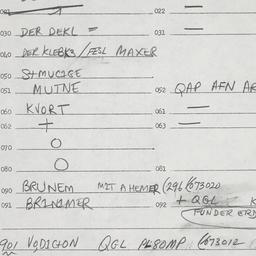 021 022
030 DER DEKL = 031
040 DER KLEBKS / FESL MAXER
050 S+MUCIGE
051 MUTNE 052 QAP AFN
060 KVORT 061
062 + 063
070 O
080 O 081
090 BRUNEM MIT A HEMER (29L (673020
091 BRINIMER 092 + QGL
FUNDER ERD
901 VODICTON QGL (673012